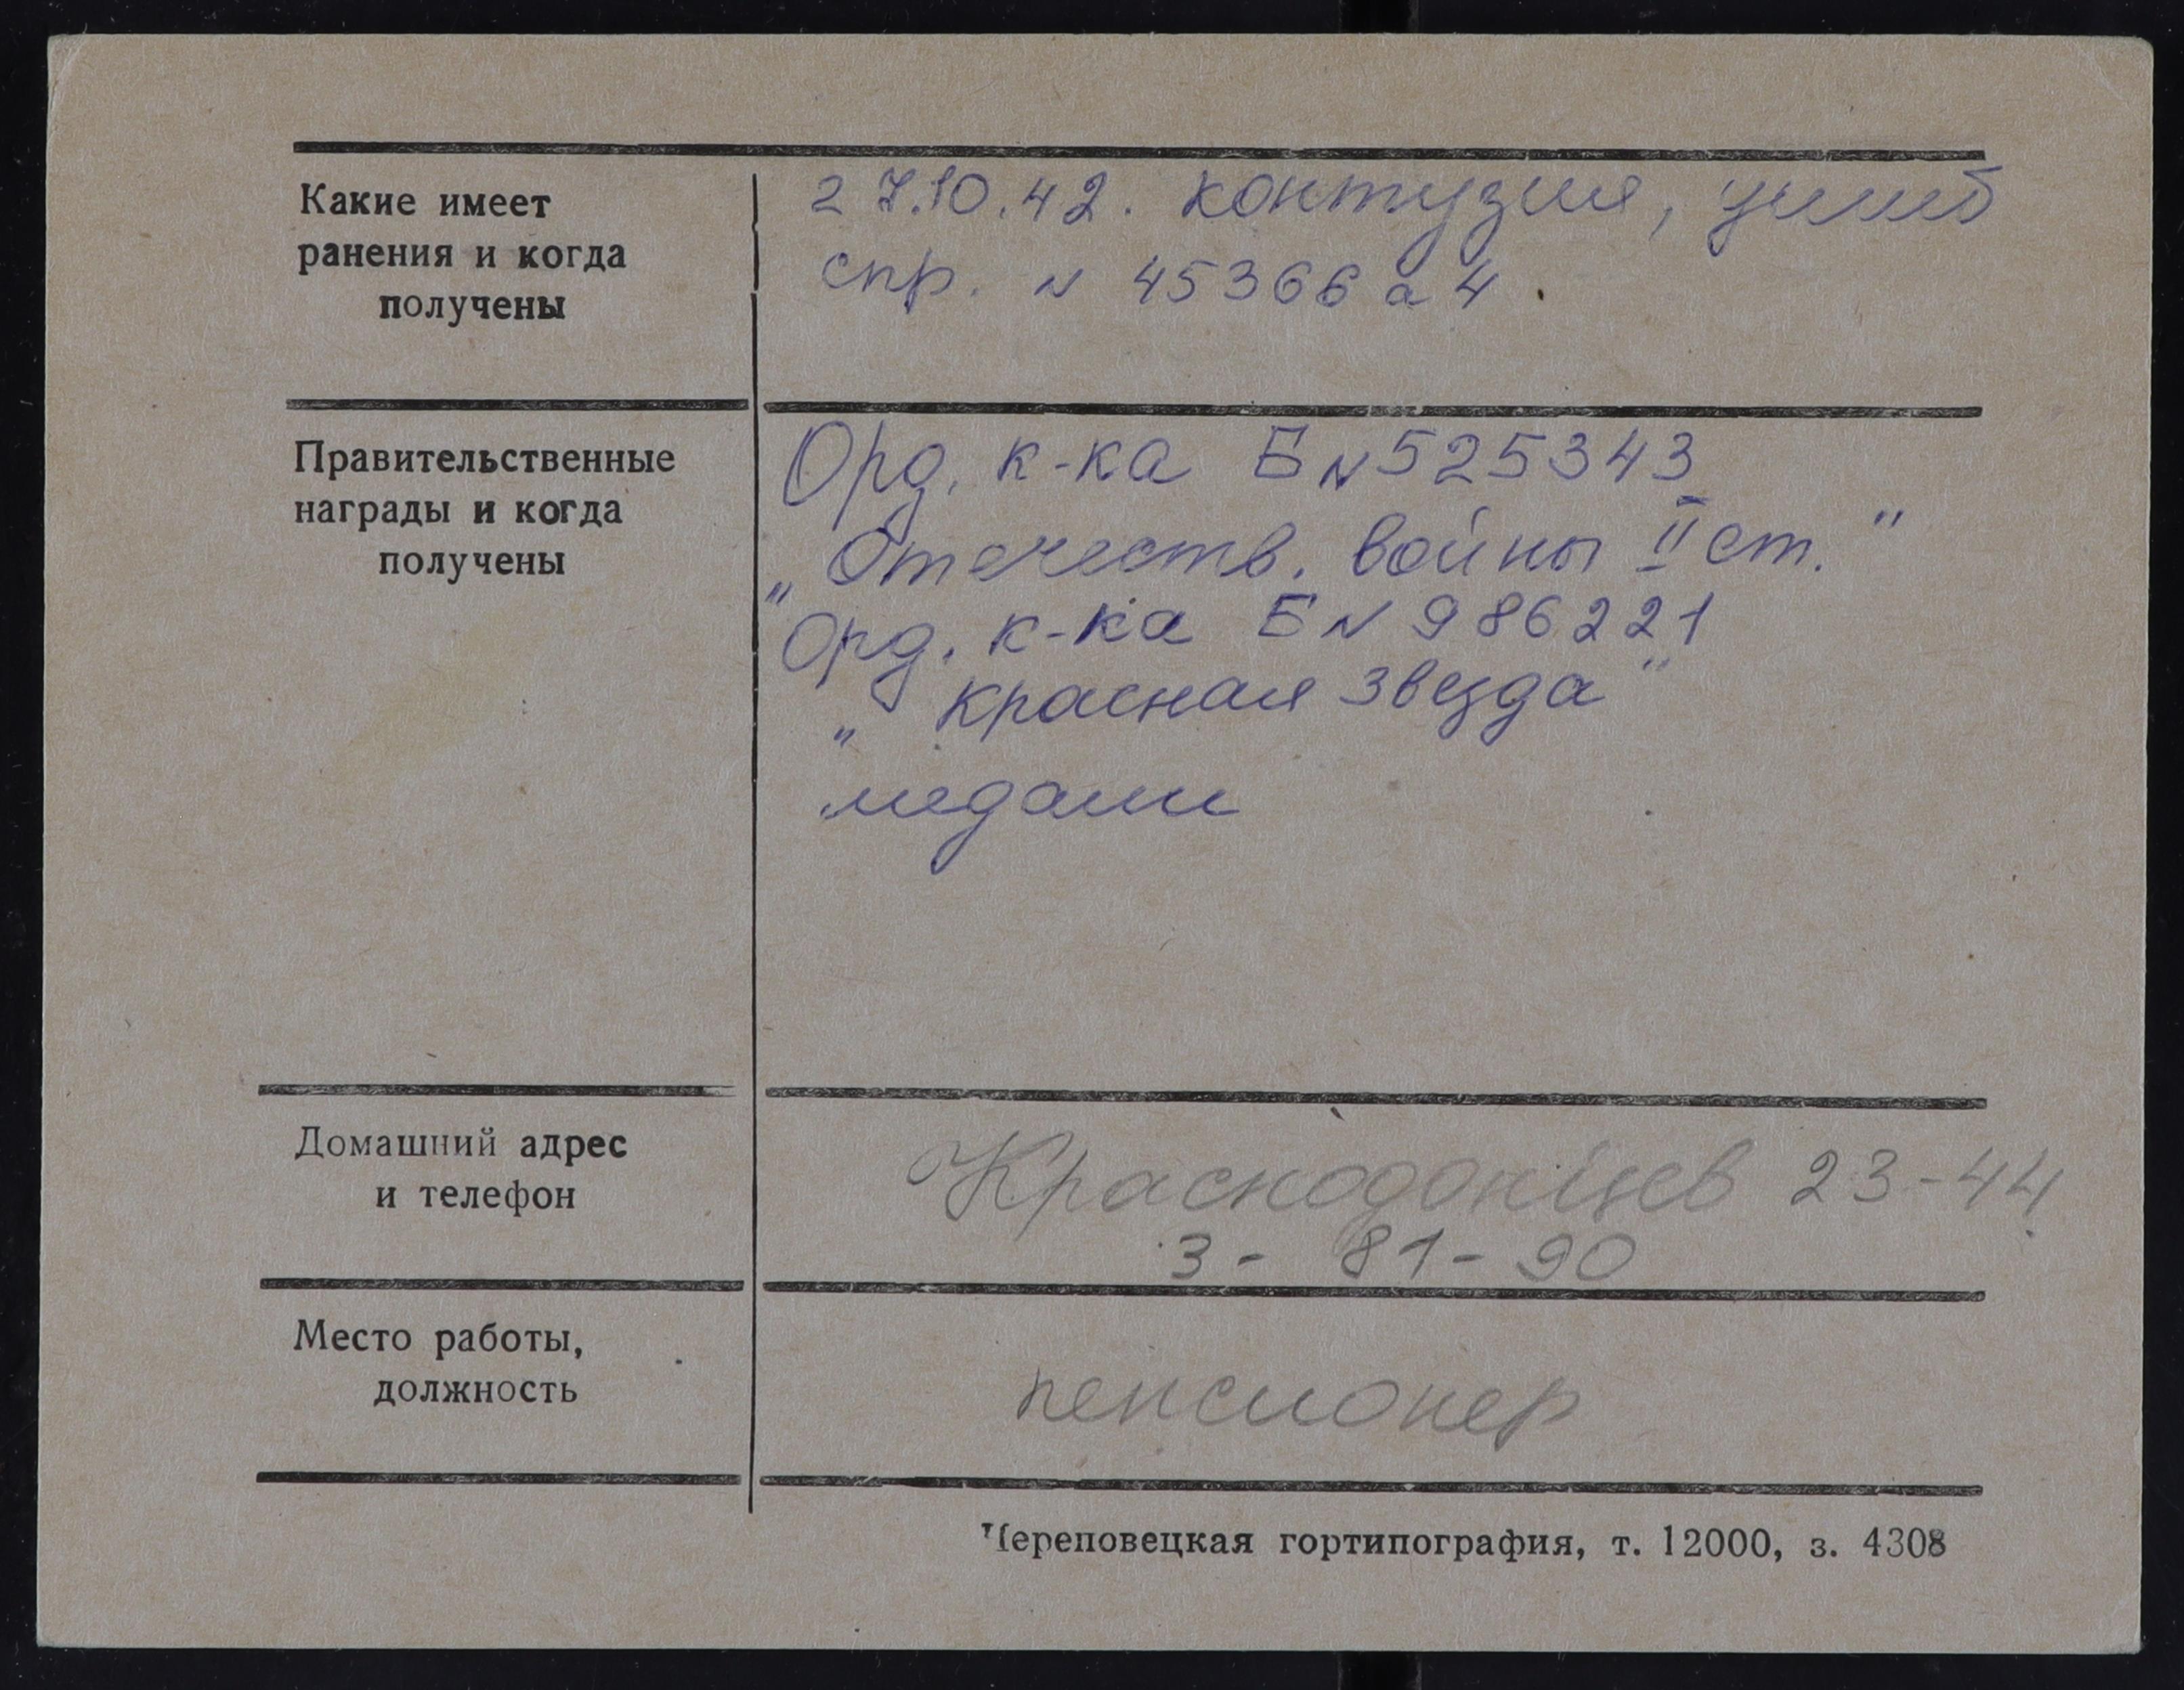 Какие имеет
ранения и когда
получены
27.10.42. контузия, ушиб
спр. N 45366 а 4.
Правительственные
награды и когда
получены
Орд. к-ка Б N 525343
„Отечеств. войны II ст."
Орд. к-ка Б N 986221
„Красная Звезда"
медали
Домашний адрес
и телефон
Краснодонцев 23-44
3-81-90
Место работы,
должность
пенсионер
Череповецкая гортипография, т. 12000, з. 4308